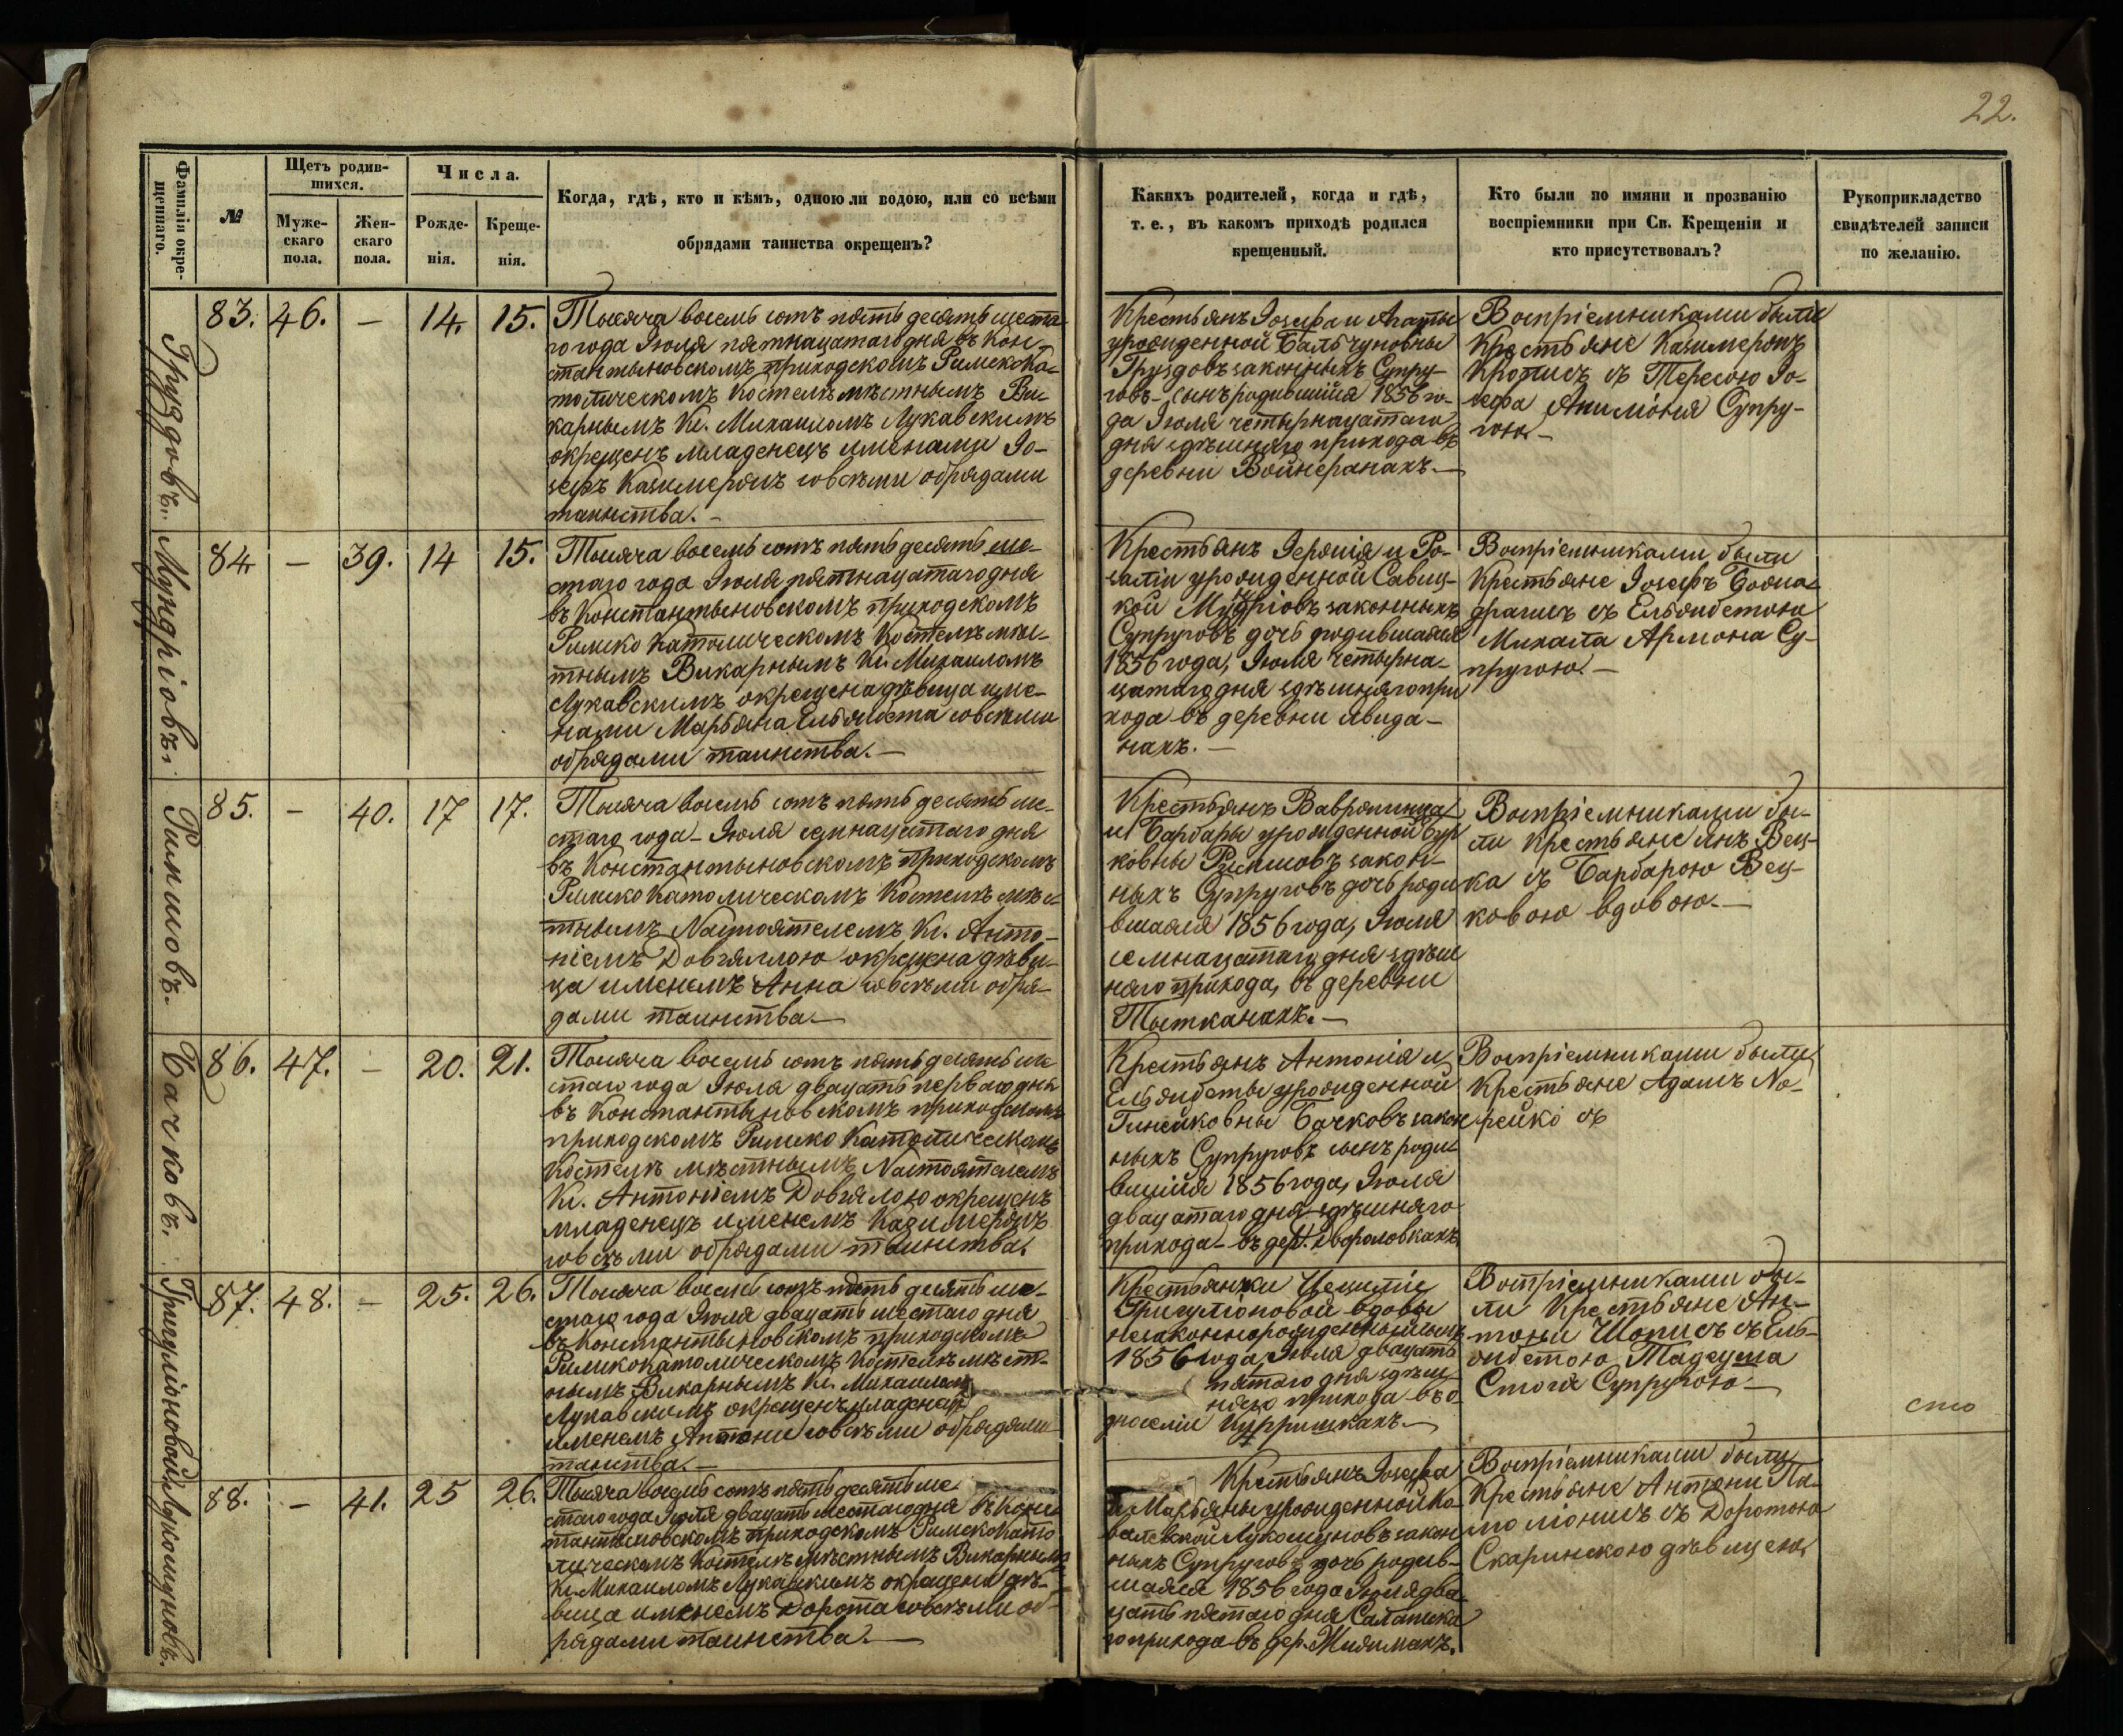 22.
Фамилія окре-
щеннаго.
№
Щетъ родив-
шихся.
Муже-
скаго
пола.
Жен-
скаго
пола.
Числа.
Рожде-
нія.
Креще-
нія.
Когда, гдѣ, кто и кѣмъ, одною ли водою, или со всѣми
обрядами таинства окрещенъ?
Какихъ родителей, когда и гдѣ,
т. е., въ какомъ приходѣ родился
крещенный.
Кто были по имяни и прозванію
воспріемники при Св. Крещеніи и
кто присутствовалъ?
Рукоприкладство
свидѣтелей записи
по желанію.
Груздовъ.
83. 46. — 14. 15.
Тысяча восемь сотъ пять десять шеста-
го года Іюля пятнацатаго дня въ Кон-
стантыновскомъ приходскомъ Римско Ка-
толическомъ Костелѣ мѣстнымъ Ви-
карнымъ Кс. Михаиломъ Лукавскимъ
окрещенъ младенецъ именами Іо-
зефъ Казимеромъ совсѣми обрядами
таинства. —
Крестьянъ Іозефа и Агаты
урожденной Бальчуновны
Груздовъ законныхъ Супру-
говъ — сынъ родившійся 1856 го-
да Іюля четырнацатаго
дня здѣшняго прихода въ
деревни Войнеранахъ. —
Воспріемниками были
Крестьяне Казимеромъ
Крописъ съ Тересою Іо-
зефа Супру-
гою. —
Мундріовъ
84. — 39. 14 15.
Тысяча восемь сотъ пять десять ше-
стаго года Іюля пятнацатаго дня
въ Константыновскомъ приходскомъ
Римско Католическомъ Костелѣ мѣс-
тнымъ Викарнымъ Кс. Михаиломъ
Лукавскимъ окрещена дѣвица име-
нами Марьяна Ельжбета совсѣми
обрядами таинства. —
Крестьянъ Іеронія и Ро-
заліи урожденной Савиц-
кой Мундріовъ законныхъ
Супруговъ дочь родившаяся
1856 года, Іюля четырна-
цатаго дня здѣшняго при
хода въ деревни
нахъ. —
Воспріемниками были
Крестьяне Іозефъ
съ Ельжбетою
Михала Армона Су-
пругою. —
Рикшовъ.
85. — 40. 17 17.
Тысяча восемь сотъ пять десять ше-
стаго года — Іюля семнацатаго дня
въ Константыновскомъ приходскомъ
Римско Католическомъ Костелѣ мѣс-
тнымъ Настоятелемъ Кс. Анто-
ніемъ Довгяллою окрещена дѣви-
ца именемъ Анна совсѣми обря-
дами таинства —
Крестьянъ Вавромнца
и Барбары урожденной Бур
ковны Рикшовъ закон-
ныхъ Супруговъ дочь роди
вшаяся 1856 года, Іюля
семнацатаго дня здѣш
няго прихода, въ деревни
Тытканахъ. —
Воспріемниками бы-
ли крестьяне Янъ Вец-
ка съ Барбарою Вец-
ковою вдовою. —
Бачковъ.
86. 47. — 20. 21.
Тысяча восемь сотъ пять десять ше
стаго года Іюля двацать перваго дня
въ Константыновскомъ приходскомъ
приходскомъ Римско Католическомъ
Костелѣ мѣстнымъ Настоятелемъ
Кс. Антоніемъ Довгялою окрещенъ
младенецъ именемъ Казимеромъ
совсѣми обрядами таинства.
Крестьянъ Антонія и
Ельжбеты урожденной
Гинейковны Бачковъ закон
ныхъ Супруговъ сынъ роди
вшійся 1856 года, Іюля
двацатаго дня здѣшняго
прихода — въ дер. Двораловкахъ.
Воспріемниками были
Крестьяне Адамъ No-
рейко съ
Григуліоновой
87. 48. — 25. 26.
Тысяча восемь сотъ пять десять ше-
стаго года Іюля двацать шестаго дня
въ Константыновскомъ приходскомъ
Римско Католическомъ Костелѣ мѣст-
нымъ Викарнымъ Кс. Михаиломъ
Лукавскимъ окрещенъ младенецъ
именемъ Антони совсѣми обрядами
таинства. —
Крестьянки Цециліи
Григуліоновой вдовы
незаконнорожденный сынъ
1856 года, Іюля двацать
пятаго дня здѣш
няго прихода — въ о-
дноселіи Цурришкахъ. —
Воспріемниками бы-
ли Крестьяне Ан-
тони Шописъ съ Ель-
жбетою Тадеуша
Стогя Супругою —
сто
Лукошуновъ.
88. — 41. 25 26.
Тысяча восемь сотъ пять десять ше
стаго года Іюля двацать шестаго дня въ Конс
тантыновскомъ приходскомъ Римско Като
лическомъ Костелѣ мѣстнымъ Викарнымъ
Кс. Михаиломъ Лукавскимъ окрещена дѣ-
вица именемъ Дорота совсѣми об-
рядами таинства. —
Крестьянъ Іозефа
и Марьяны урожденной Ко-
валевской Лукошуновъ закон
ныхъ Супруговъ дочь родив-
шаяся 1856 года Іюля два
цать пятаго дня
го прихода въ дер.
Воспріемниками были
Крестьяне Антони Па-
съ Доротою
Скаринскою дѣвицею.